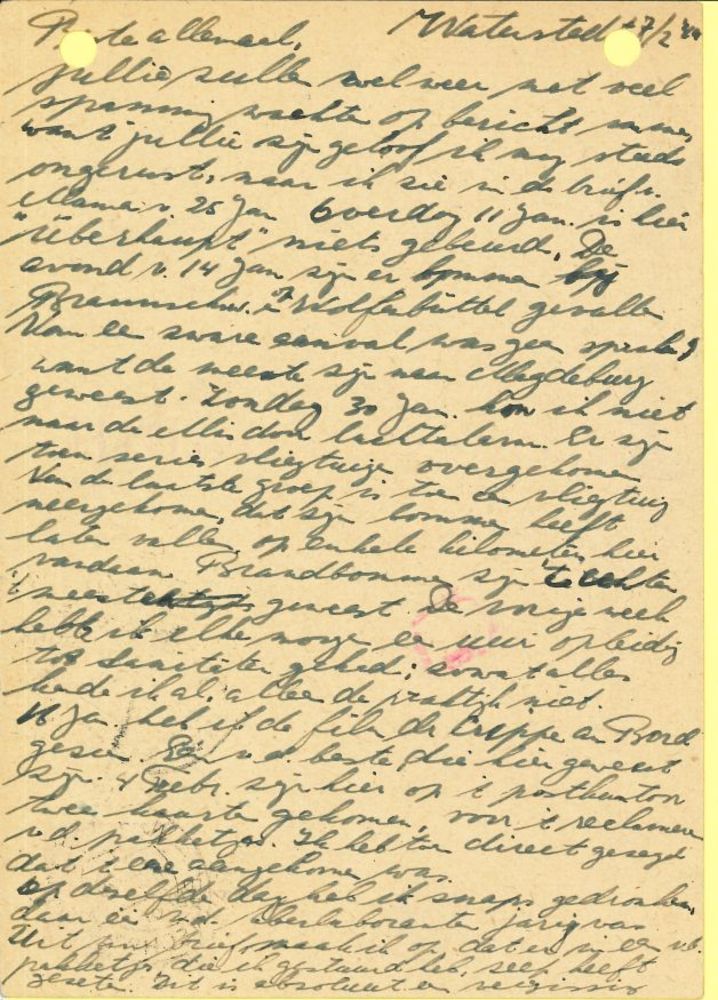 Beste allemaal, Waterstedt 7/2 '44
Jullie zulle wel weer met veel
spanning wachte op bericht van me,
want jullie zijn geloof ik nog steeds
ongerust, maar ik zie in de brief v.
Mama v. 25 Jan overdag 11 Jan. is hier
"überhaupt" niets gebeurd. De
avond v. 14 Jan zijn er bomme bij
Braunschw. en of Wolfenbüttel gevalle
Van ee zware aanval was geen sprake,
want de meeste zijn naar Magdeburg
geweest. Zondag 30 Jan. kon ik niet
naar de luchtalarm. Er zijn
toen series vliegtuige overgekome
Van de laatste groep is toe ee vliegtuig
neergekome, dat zijn bomme heeft
late valle, op enkele kilometer hier
vandaan. Brandbomme zijn 't echter
't meest geweest De vorige week
heb ik elke morge ee uur opleidig
tot Sanitäter gehad; zowat alles
kende ik al, allee de praktijk niet.
16 Jan heb ik de film der Truppe an Bord
gezien. Een v.d. beste die hier geweest
zijn. 4 Febr. zijn hier op 't postkantoor
twee kaarte gekomen, voor 't reclamere
v.d. pakketjes. Ik heb toe direct gezegd
dat 't ene aangekome was.
Op dezelfde dag heb ik snaps gedronken,
daar éé v.d. jarig was
Uit brief maak ik op dat er in éé v.d.
pakketjes die ik gestuurd heb, zeep heeft
gezete. Dit is absoluut ee vergissing